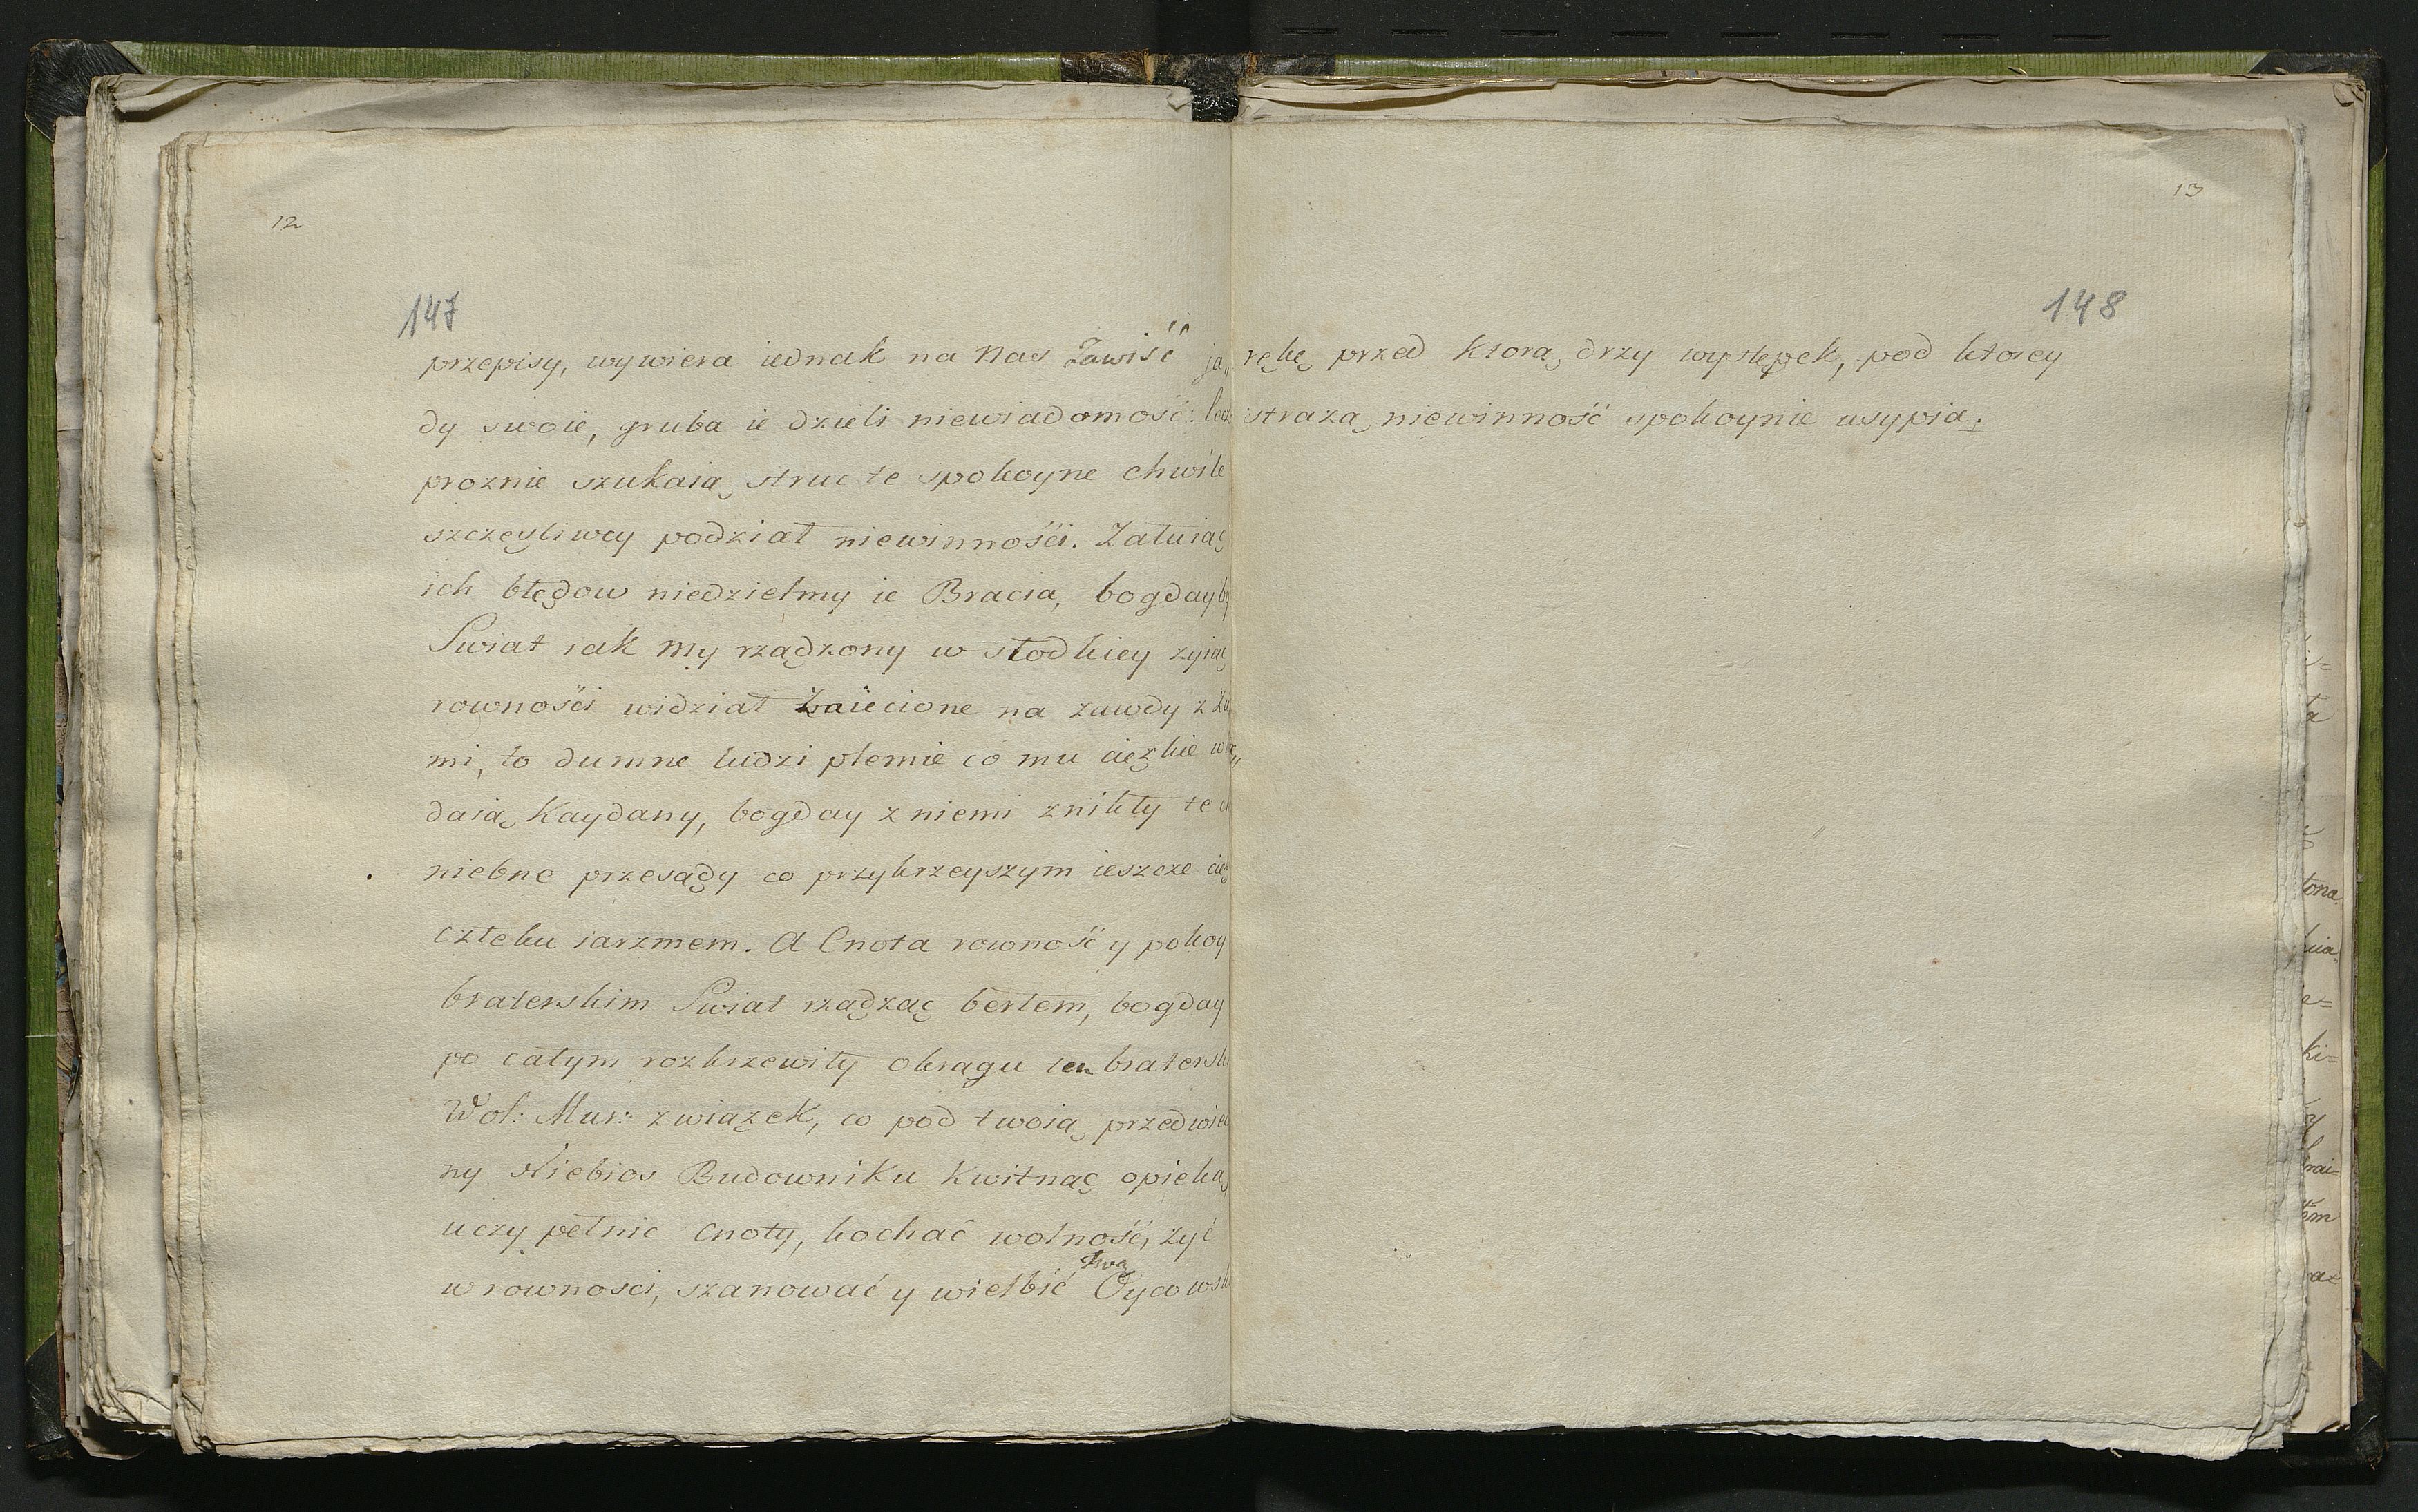 12
147
przepisy, wywiera iednak na nas Zawiść ja„
dy swoie, gruba ie dzieli niewiadomość: lecz
proznie szukaią struc te spokoyne chwile
szczesliwey podział niewinnośći. Załuiąc
ich błędow niedzielmy ie Bracia, bogdayby
Swiat iak my rządzony w słodkiey zyiąc
rownośći widział na zawdy z
mi, to dumne ludzi plemie co mu ciezkie wk„
daią Kaydany, bogday z niemi znikły te
niebne przesądy co przykrzeyszym ieszcze
człeku iarzmem. A Cnota rowność y pokoy
braterskim Swiat rządząc berłem, bogday
po całym rozkrzewiły okragu ten bratersk
Wol: Mur: związek, co pod twoią przedwiec
ny Niebios Budowniku Kwitnąc opieką
uczy pełnic cnoty, kochać wolność, zyć
w rownosci, szanować y wielbić Twą Oycowsk
13
148
rękę przed ktorą drzy występek, pod ktorey
strazą niewinność spokoynie usypia.